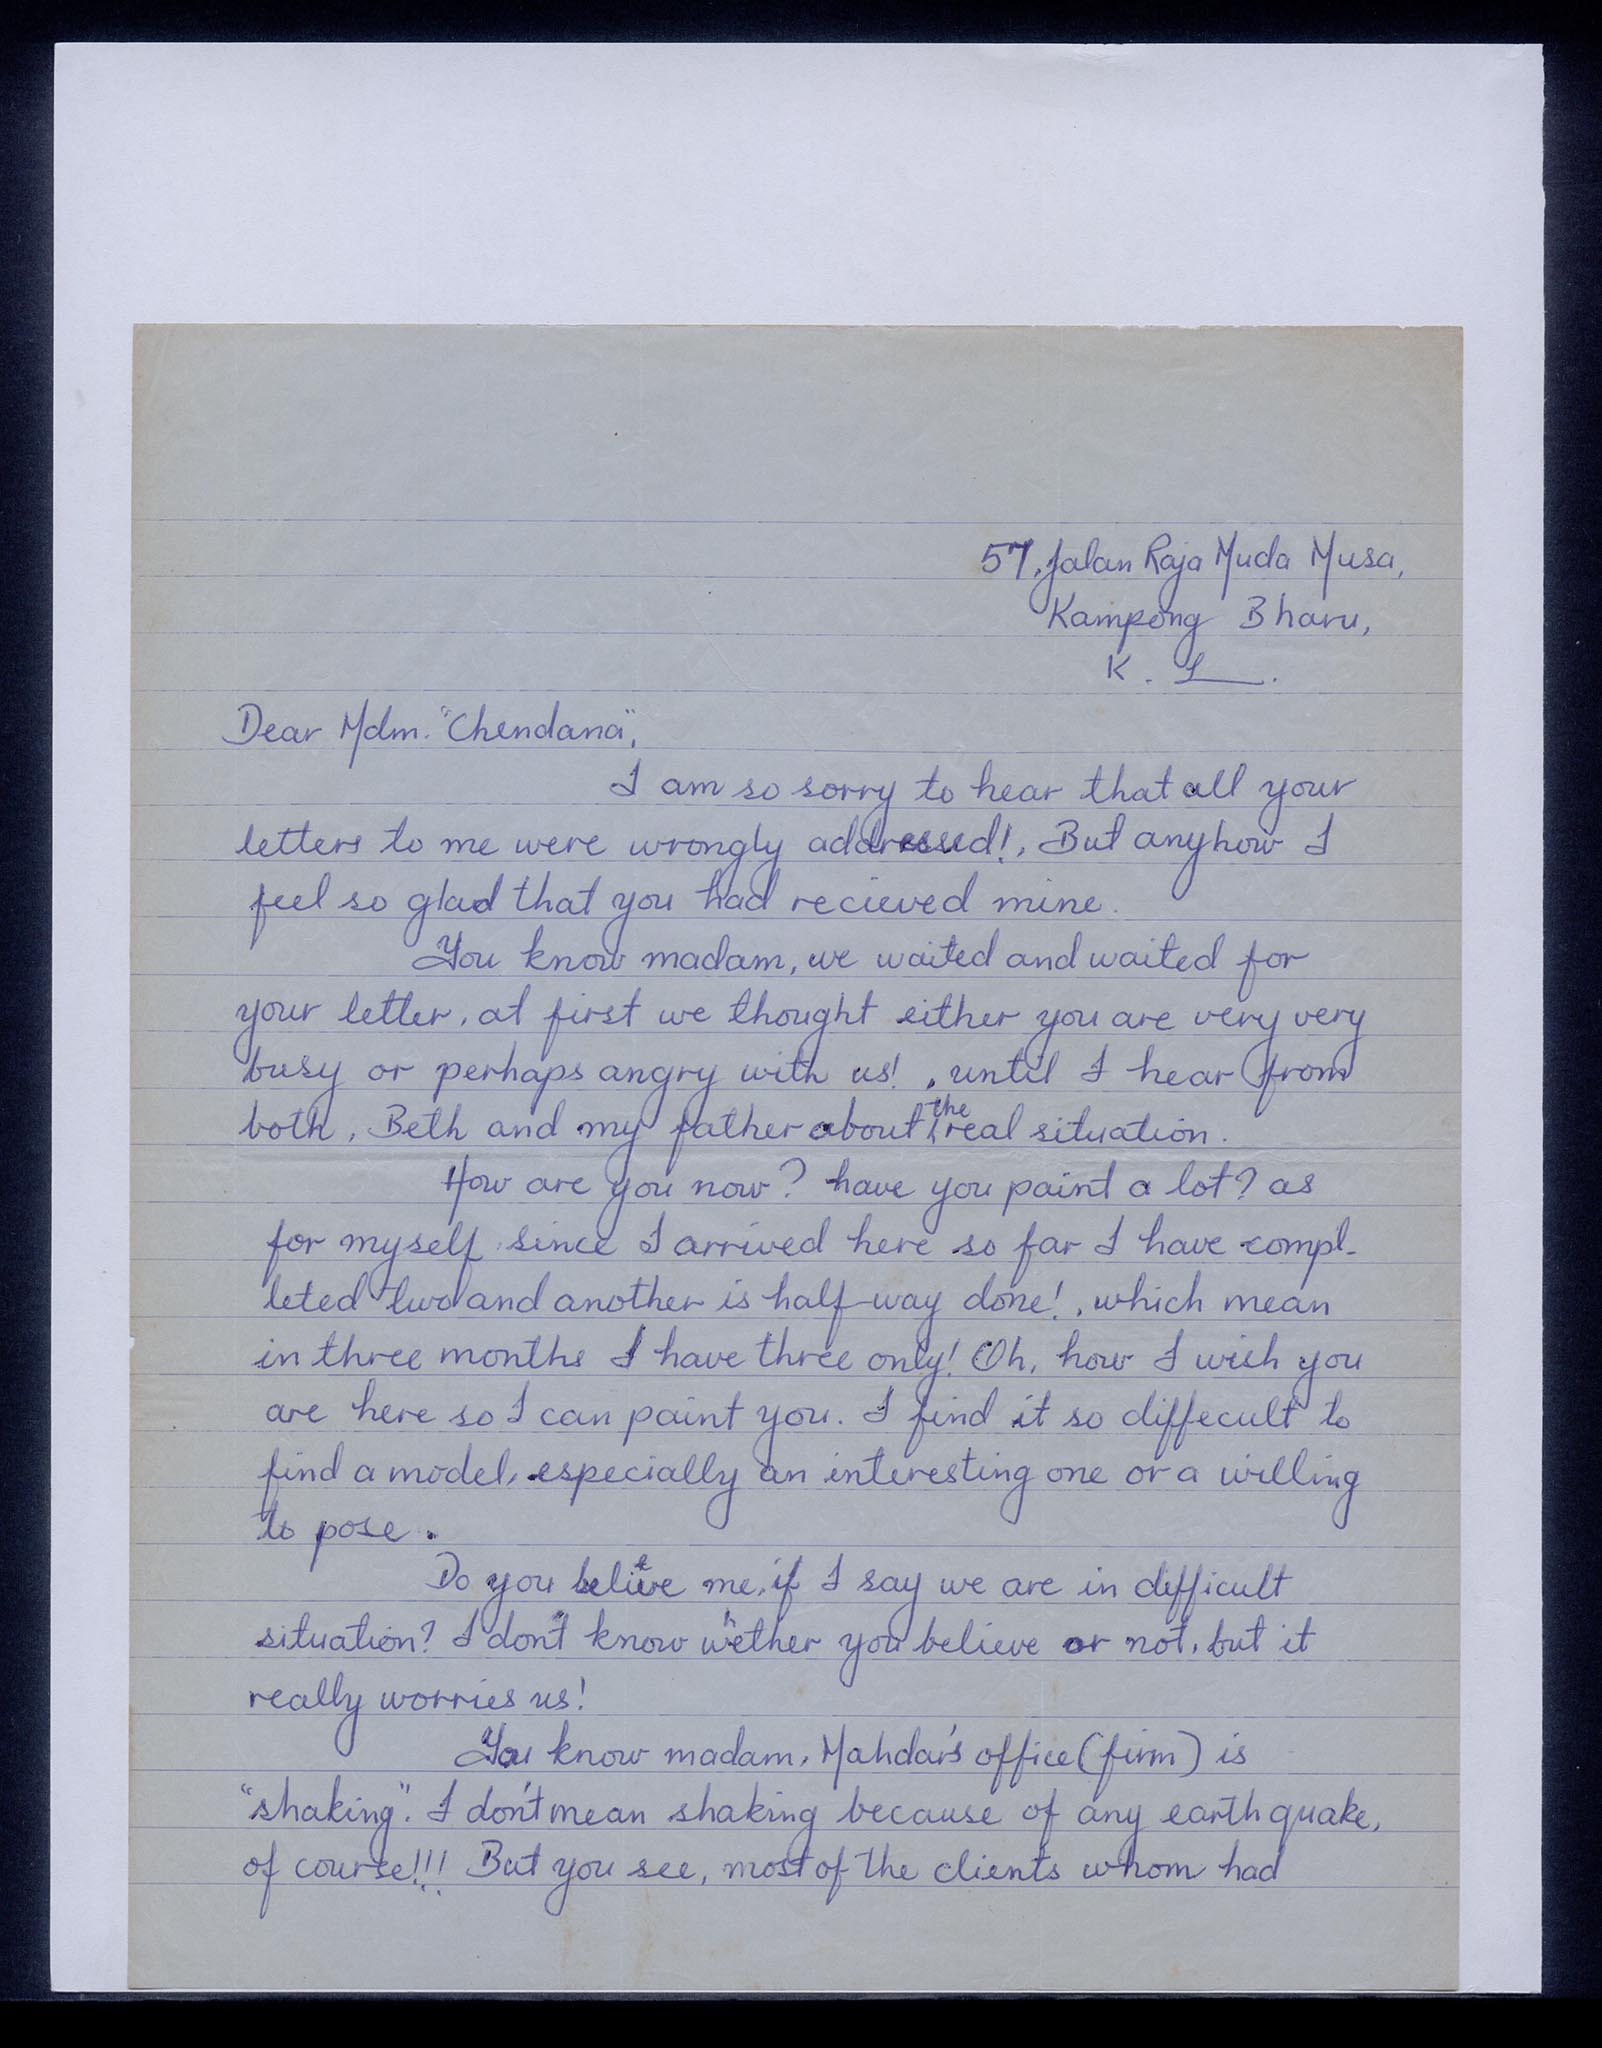 57, Jalan Raja Muda Musa,
Kampong Bharu,
K. L.
Dear Mdm. "Chendana",
I am so sorry to hear that all your
letters to me were wrongly addressed!, But anyhow I
feel so glad that you had recieved mine.
You know madam, we waited and waited for
your letter, at first we thought either you are very very
busy or perhaps angry with us!, until I hear from
both, Beth and my father about the real situation.
How are you now? have you paint a lot? as
for myself since I arrived here so far I have compl-
leted two and another is half-way done!, which mean
in three months I have three only! Oh, how I wish you
are here so I can paint you. I find it so diffecult to
find a model, especially an interesting one or a willing
to pose.
Do you believe me, if I say we are in difficult
situation? I don't know whether you believe or not, but it
really worries us!
You know madam, Mahdar's office (firm) is
"shaking". I don't mean shaking because of any earth quake,
of course!!! But you see, most of the clients whom had